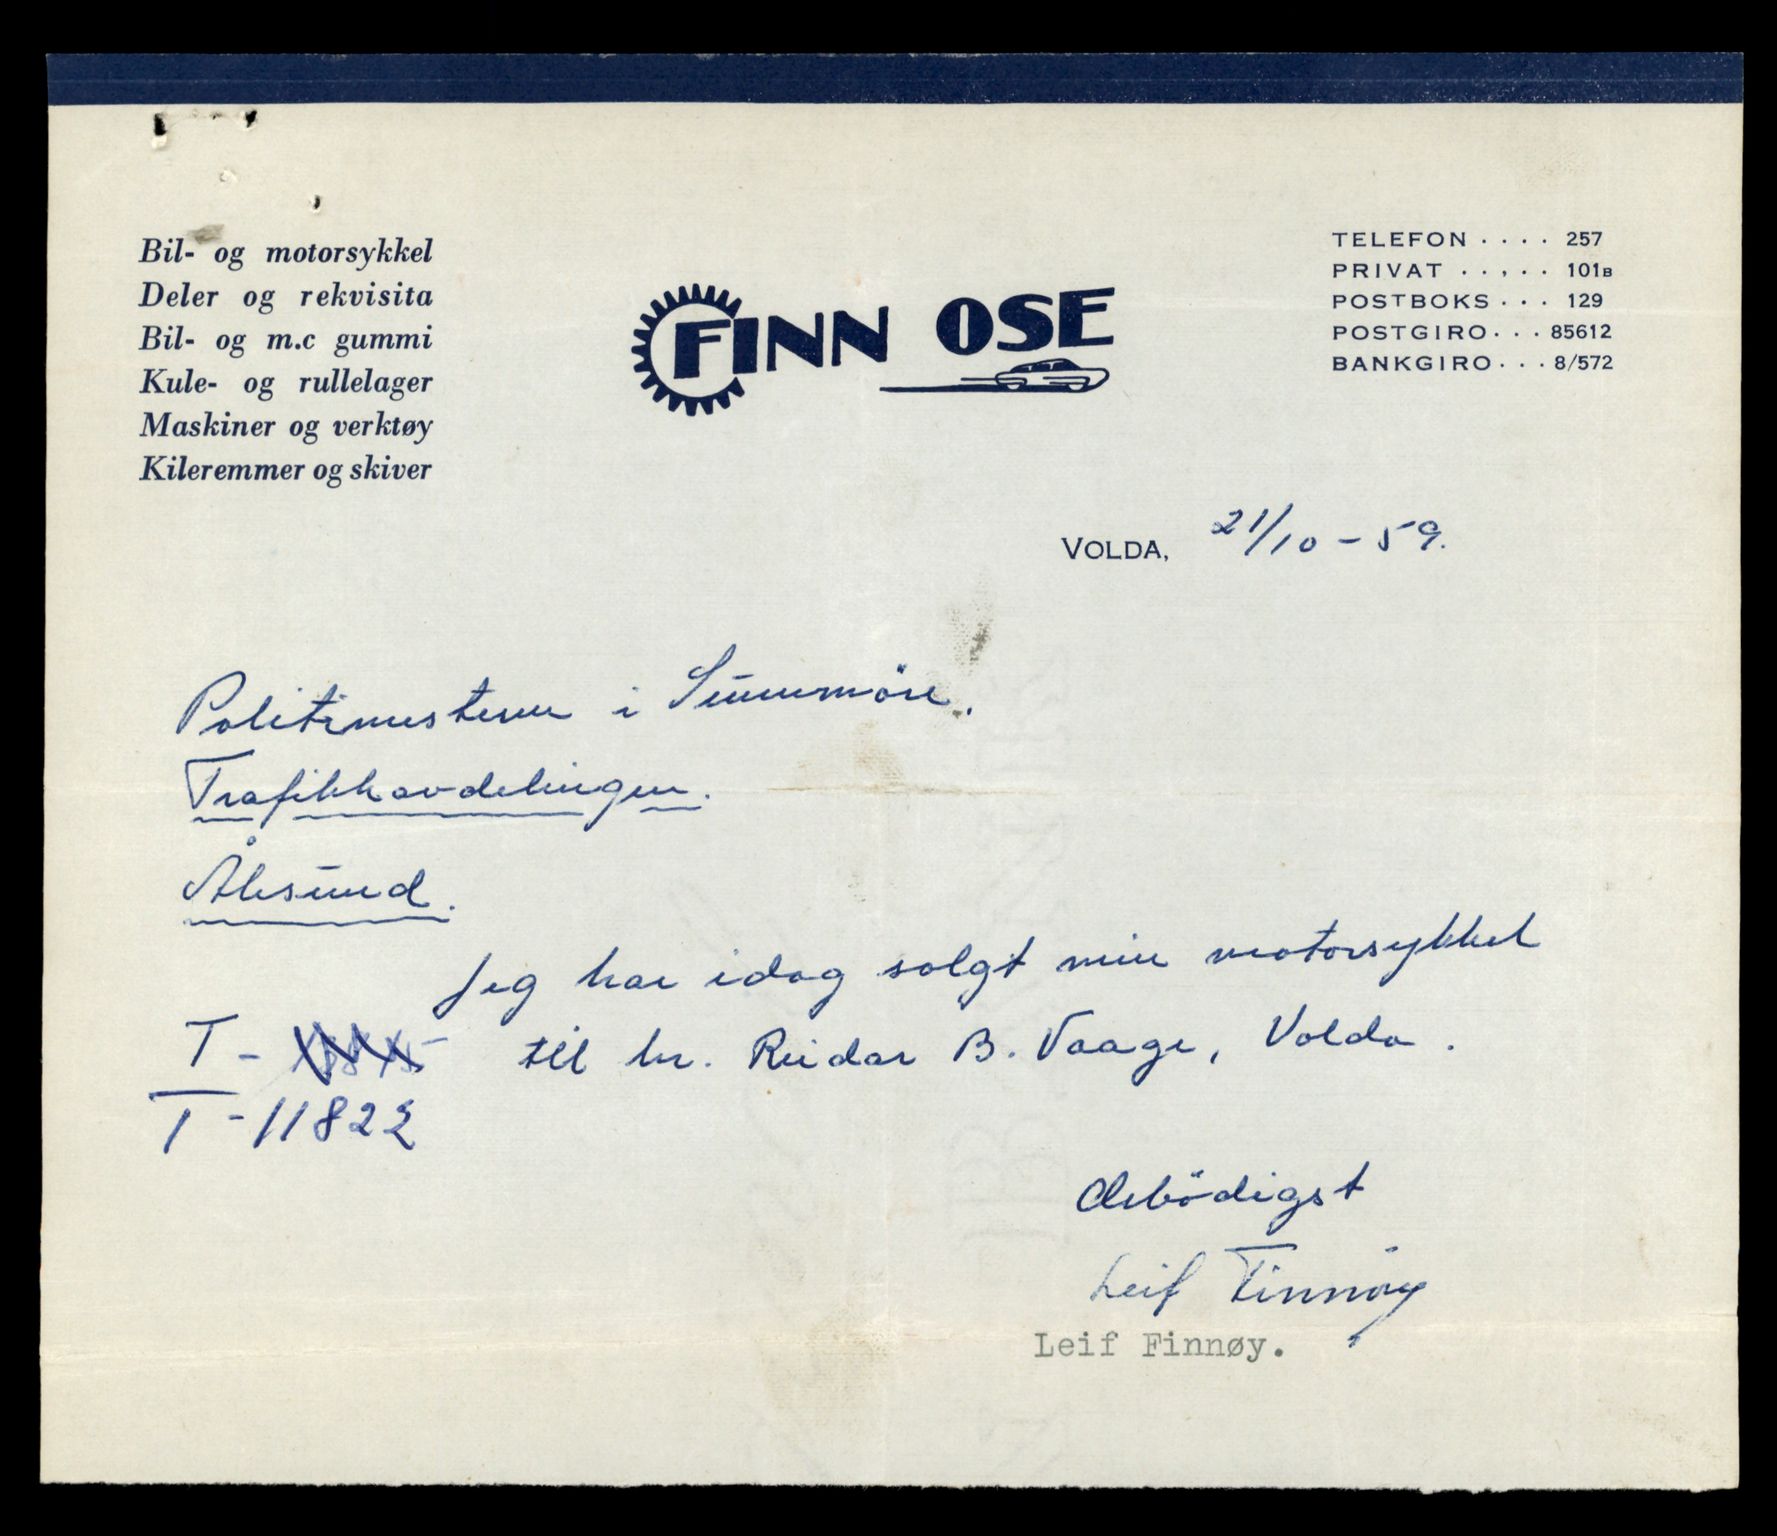 Bil- og motorsykkel
Deler og rekvisita
Bil- og m.c gummi
Kule- og rullelager
Maskiner og verktøy
Kileremmer og skiver
FINN OSE
TELEFON . . . . 257
PRIVAT . . . . . 101B
POSTBOKS . . . 129
POSTGIRO . . . 85612
BANKGIRO . . . 8/572
VOLDA, 21/10 – 59.
Politimesteren i Sunnmöre.
Trafikkavdelingen.
Ålesund.
Jeg har idag solgt min motorsykkel
T – til hr. Reidar B. Vaage, Volda.
T - 11822
Ærbödigst
Leif Finnöy
Leif Finnøy.